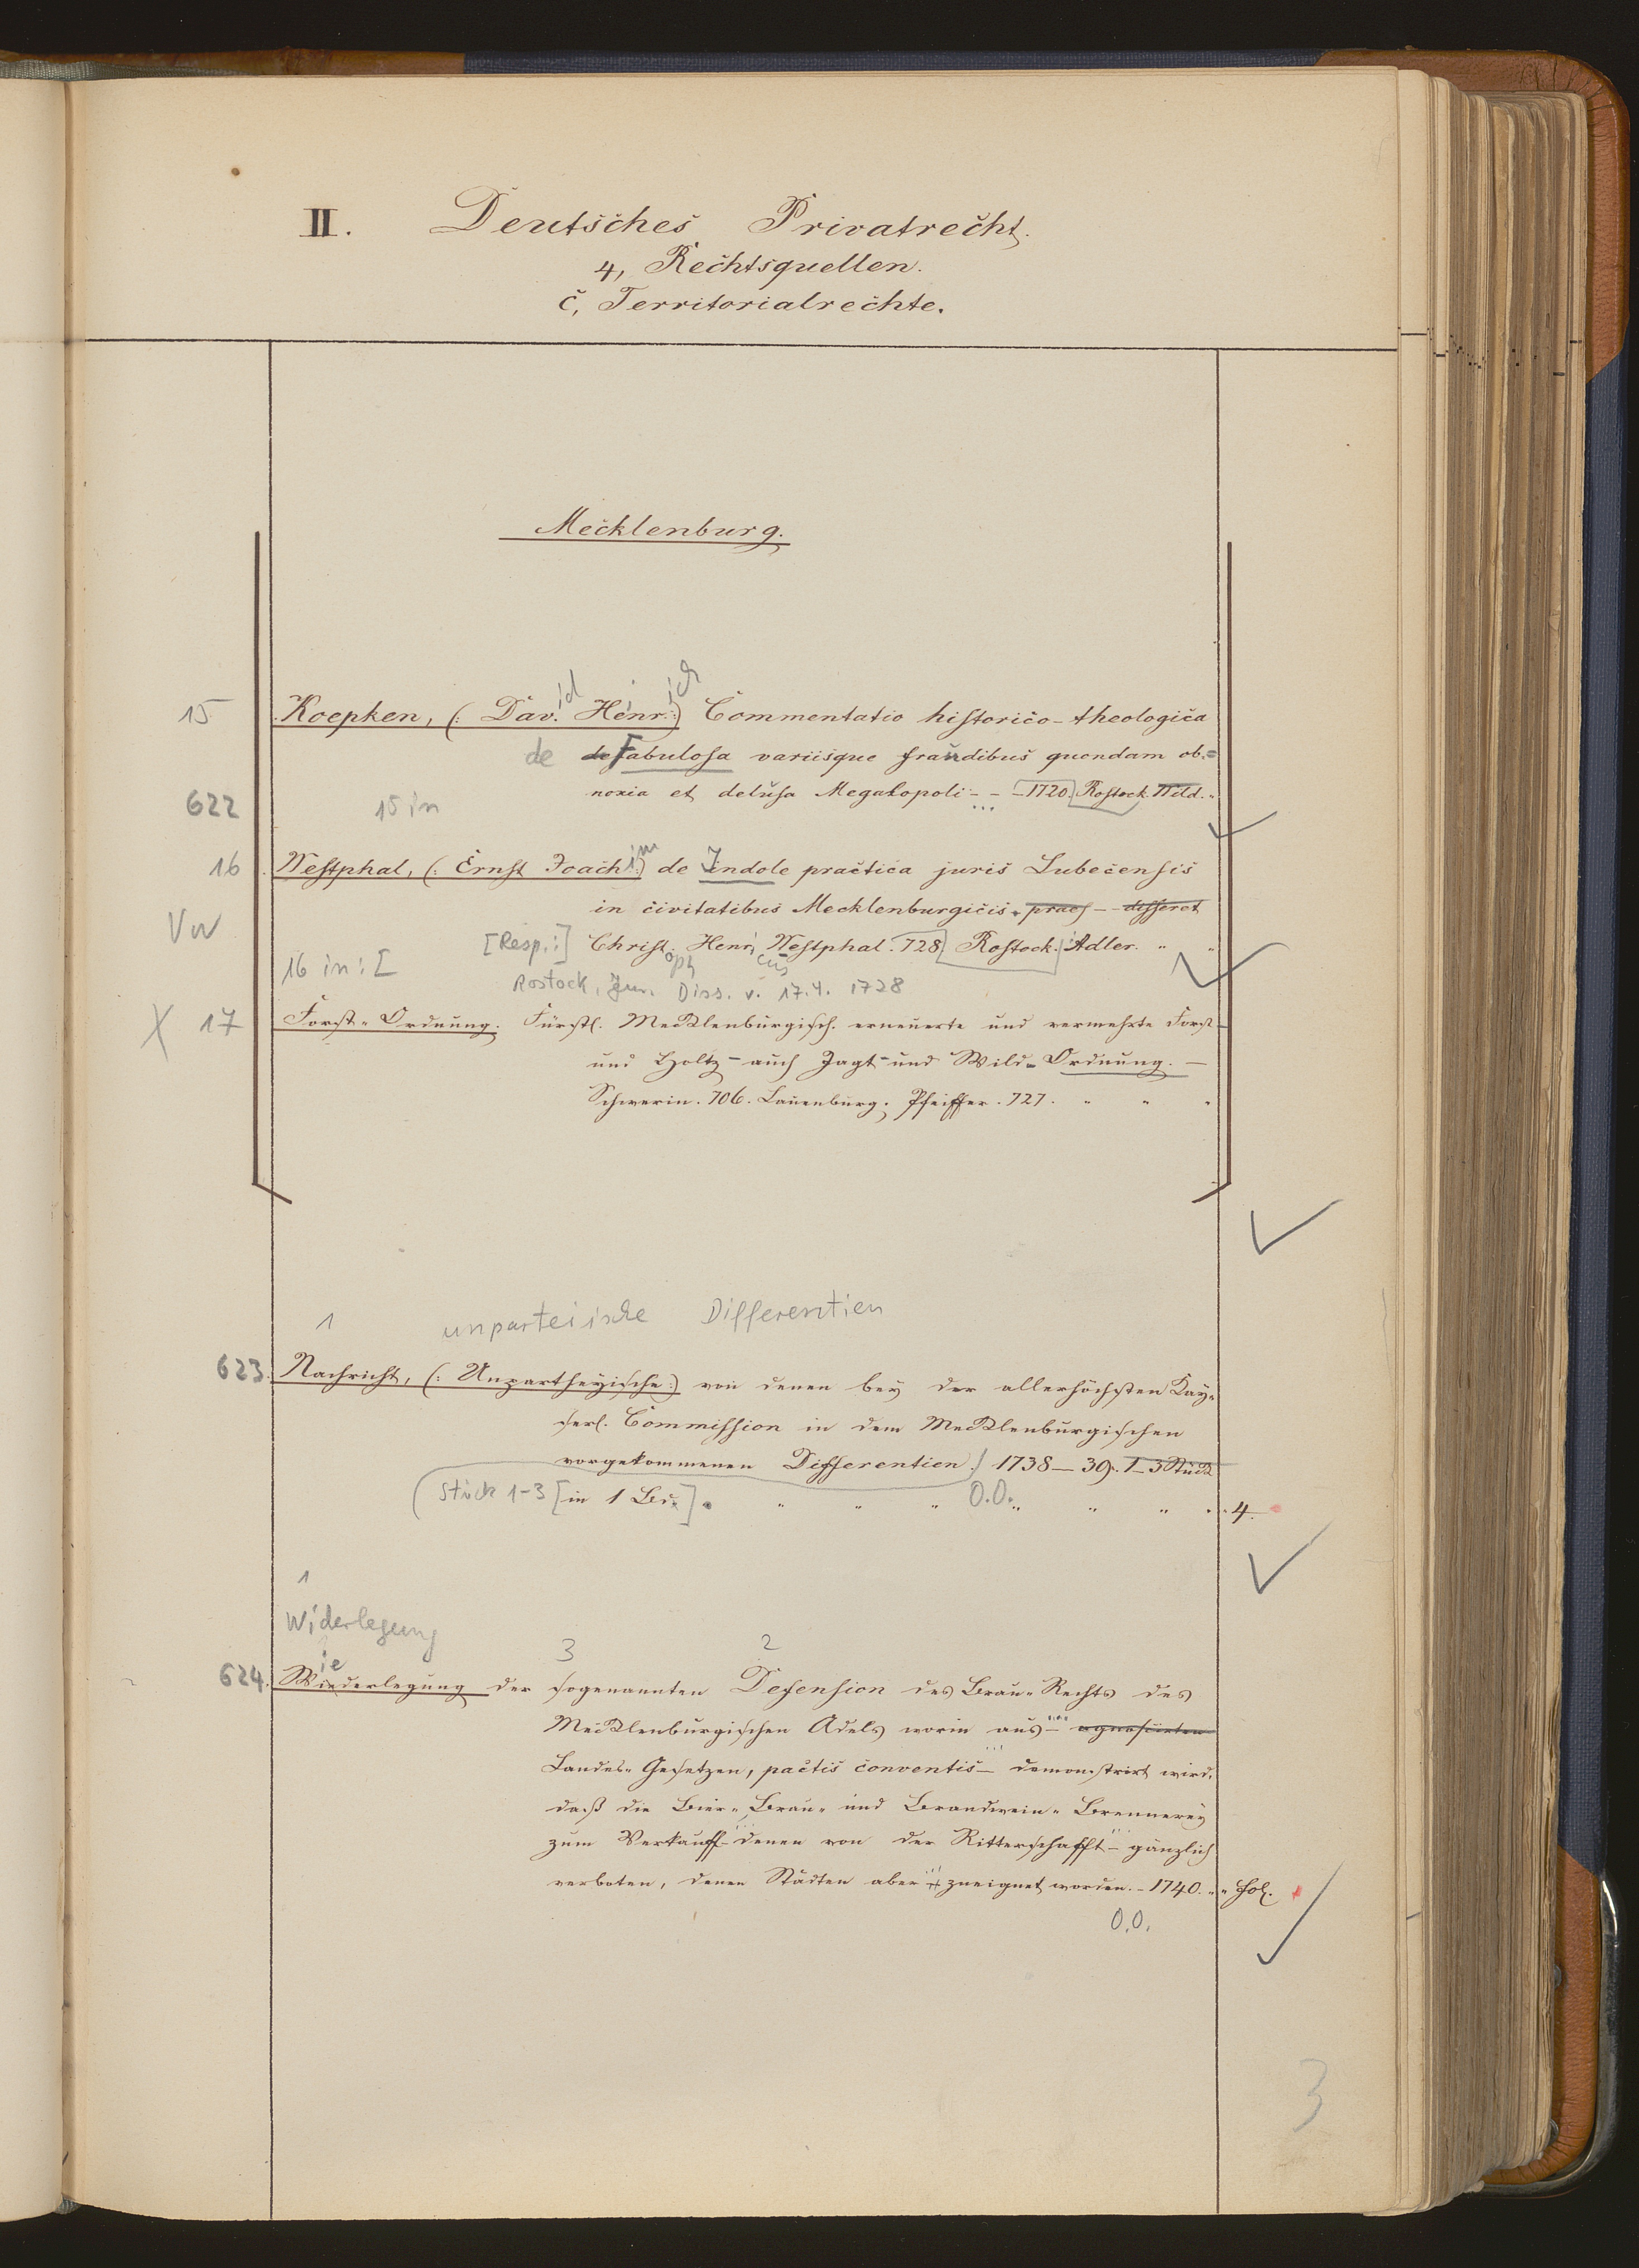 II. Deutsches Privatrecht.
4, Rechtsquellen.
c, Territorialrechte.
Mecklenburg.
id ich
15 Koepken, (: Dav. Henr:) Commentatio historico-theologica
de de Fabulosa variisque fraudibus quondam ob=
noxia et delusa Megalopoli - - - 1720. Rostock. Wild. "
622 15 in
16 Westphal, (: Ernst Joach:) im de Indole practica juris Lubecensis
in civitatibus Mecklenburgicis - praes - - differet
Vw
[Resp.:] Christ. Henr. Westphal. 728. Rostock. Adler. " "
oph cus
16 in: [
Rostock, Jur. Diss. v. 17.4. 1728
X 17 Forst-Ordnung. Fürstl. Mecklenburgisch. erneuerte und vermehrte Forst-
und Holtz- auch Jagt- und Wild-Ordnung. -
Schwerin. 706. Lauenburg. Pfeiffer. 727. " " "
1 unparteiische Differentien
623. Nachricht, (: Unpartheyische:) von denen bey der allerhöchsten Kay=
serl. Commission in dem Mecklenburgischen
vorgekommenen Differentien. 1738-39. 1-3 Stück
Stück 1-3 [in 1 Bd.] " " " O.O. " " " " 4.
1
Widerlegung
3 2
ie
624. Wiederlegung der sogenannten Defension des Brau-Rechts des
Mecklenburgischen Adels worin aus - agnoscirten
Landes-Gesetzen, pactis conventis - demonstrirt wird,
daß die Bier-Brau- und Brandwein-Brennerey
zum Verkauff - denen von der Ritterschafft - gänzlich
verboten, denen Städten aber zueignet worden. - 1740. " " Fol.
O.O.
3